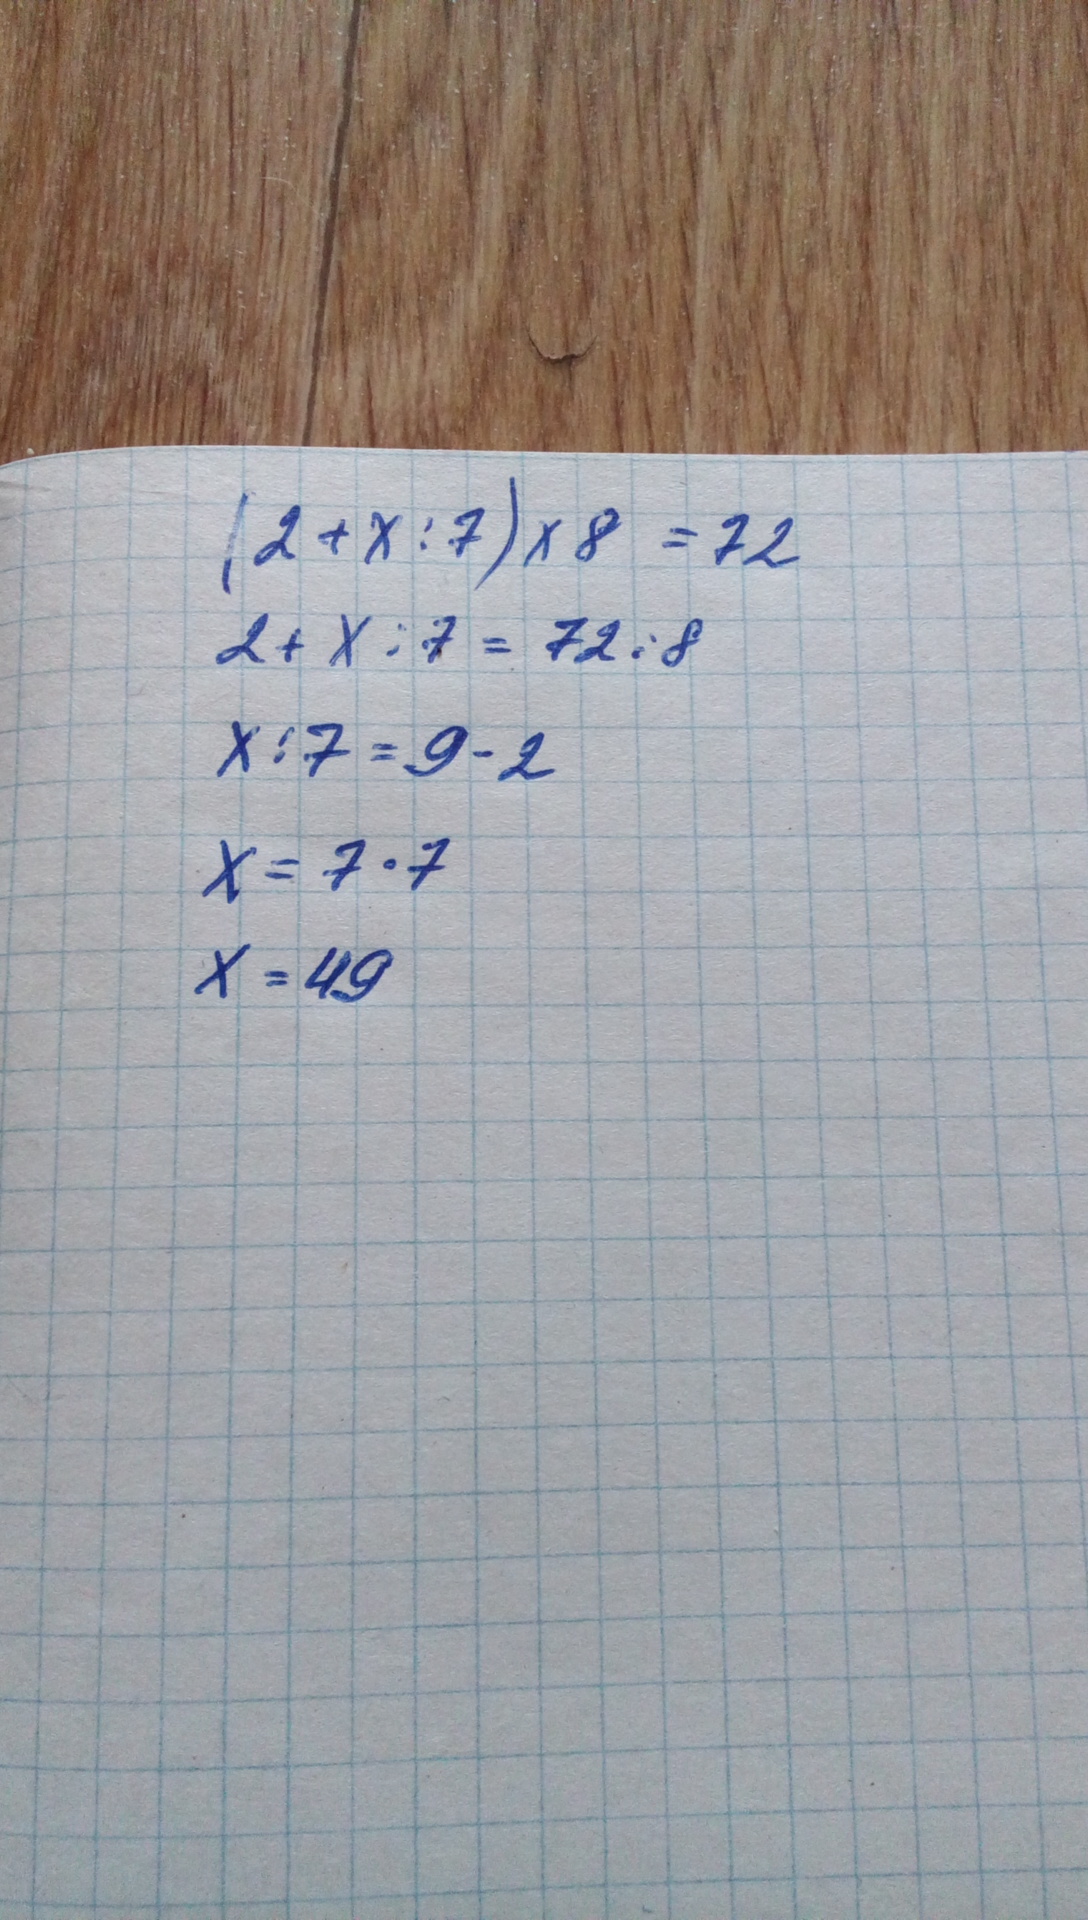 (2 + x : 7) x 8 = 72
2 + x : 7 = 72 : 8
x : 7 = 9 - 2
x = 7 · 7
x = 49